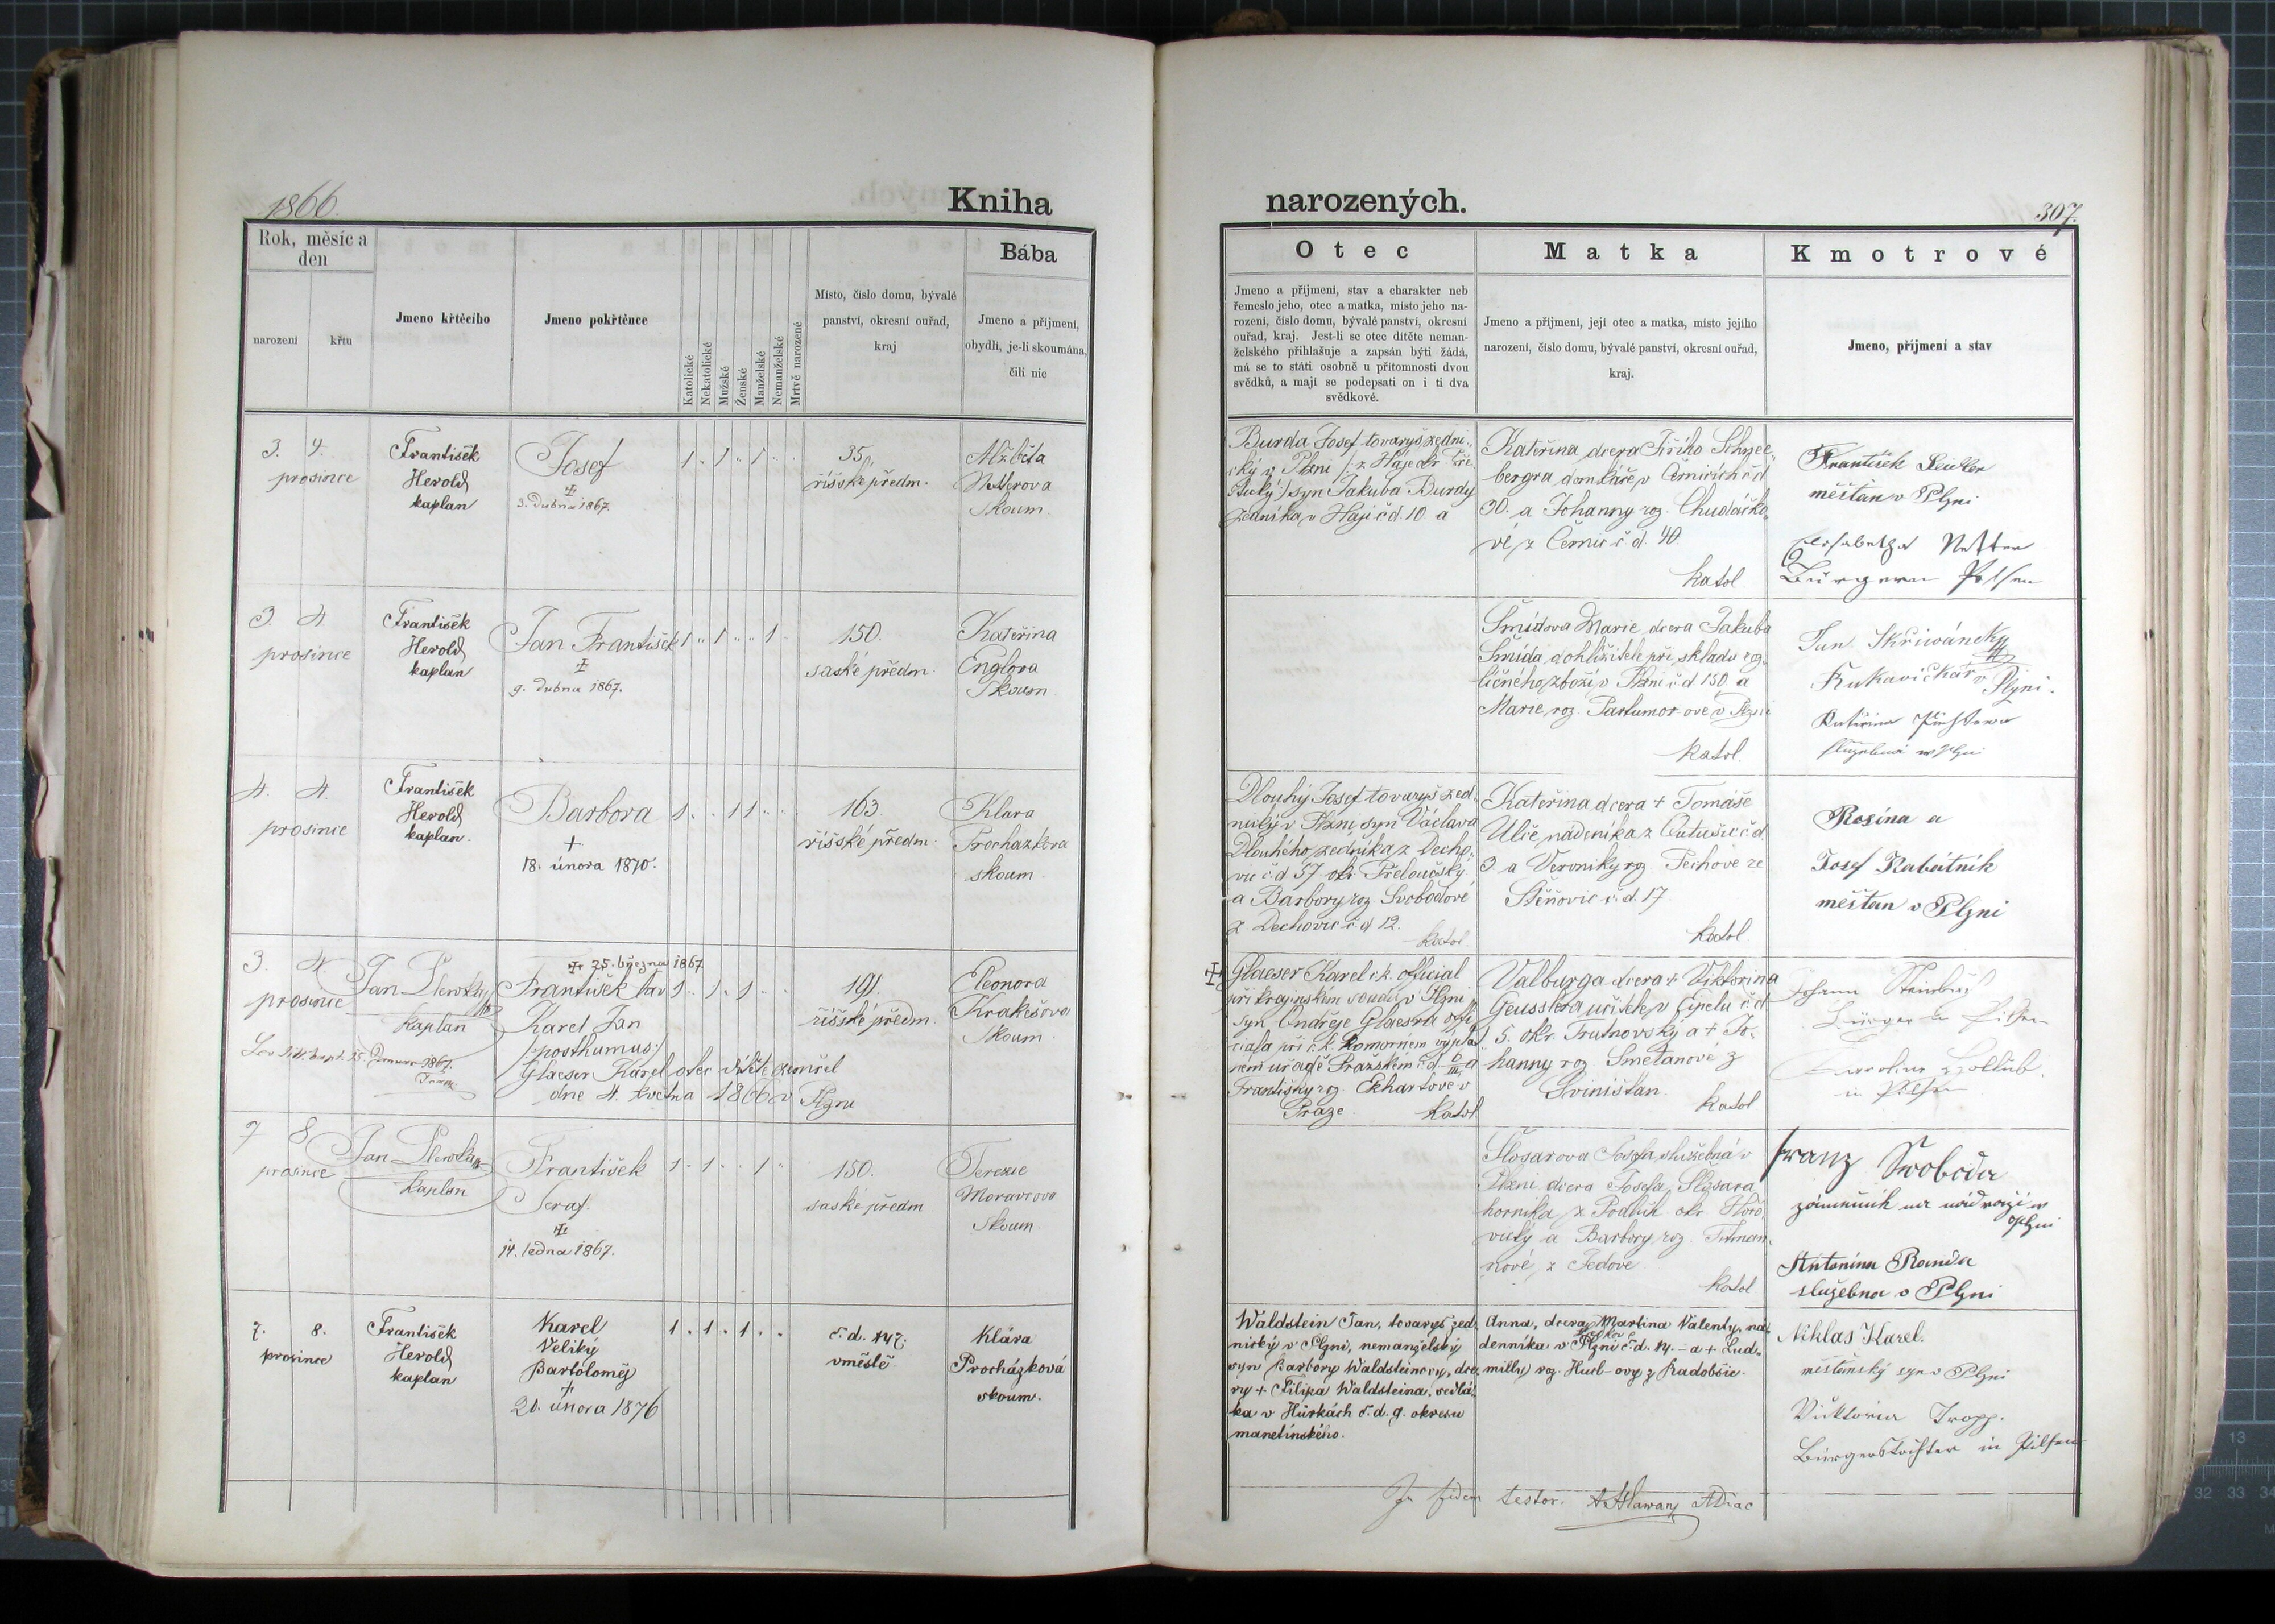 1866.
Kniha
narozených.
307.
Rok, měsíc a
den
narození
křtu
Jmeno křtěcího
Jmeno pokřtěnce
Katolické
Nekatolické
Mužské
Ženské
Manželské
Nemanželské
Mrtvě narozené
Místo, číslo domu, bývalé
panství, okresní ouřad,
kraj
Bába
Jmeno a příjmení,
obydlí, je-li skoumána,
čili nic
Otec
Jmeno a příjmení, stav a charakter neb
řemeslo jeho, otec a matka, místo jeho na-
rození, číslo domu, bývalé panství, okresní
ouřad, kraj. Jest-li se otec dítěte neman-
želského přihlašuje a zapsán býti žádá,
má se to státi osobně u přítomnosti dvou
svědků, a mají se podepsati on i ti dva
svědkové.
Matka
Jmeno a příjmení, její otec a matka, místo jejího
narození, číslo domu, bývalé panství, okresní ouřad,
kraj.
Kmotrové
Jmeno, příjmení a stav
3. 4.
prosince
František
Herold
kaplan
Josef
3. Dubna 1867.
1 1 1
35
říšské předm.
Alžběta
Skoum.
Burda Josef tovaryš zedni-
cký v Plzni
syn Jakuba Burdy
zedníka v Háji čd. 10 a
Kateřina dcera Jiřího Schnee-
bergra domkáře v Černicích čd
30. a Johanny roz. Chudáčko-
vé z Černic č. d. 40.
katol
František Seidler
měštan v Plzni
Elisabetha Netter
Bürgerin Pilsen
3. 4.
prosince
František
Herold
kaplan
Jan František
9. dubna 1867.
1 1 1
150.
saské předm.
Kateřina
Englova
Skoum
Šmídova Marie dcera Jakuba
Šmída, dohlížitele při skladu roz-
ličného zboží v Plzni čd 150. a
Marie, roz. v Plzni
katol.
Jan Skřiwánek
Rukavičkář v Plzni.
Kateřina
služebná w Plzni
4. 4.
prosince
František
Herold
kaplan.
Barbora
+
18. února 1870.
1 1 1
163
říšské předm.
Klara
Prochazkova
skoum
Dlouhý Josef tovaryš zed-
nický v Plzni syn Václava
Dlouhého, zedníka z Decho-
vic č. d 57. okr Přeloučský
a Barbory, roz. Svobodové
z. Dechovic č. d 12.
katol.
Kateřina dcera + Tomáše
Ulče, nádeníka z Cutušic č. d
3 a Veroniky roz. Pechové ze
Štěňovic č. d. 17.
katol.
Rosina a
Josef Kabátník
měštan v Plzni
3. 4
prosince
Jan Plewka
kaplan
25. března 1867.
František
Karel Jan
/:posthumus:/
Glaeser Karel otec dítěte zemřel
dne 4. května 1866 v Plzni
1 1 1
191.
říšské předm.
Eleonora
Krakešova
Skoum
Glaeser Karel c. k. official
při krajinském soudu v Plzni
syn Ondřeje Glaesra offi-
ciala při c. k. komorním výplat-
ním uřadě Pražském č. d a
Františky roz. Ekhartové v
Praze. Katol
Valburga dcera + Viktorina
Geusslera učitele v Eipelu č. d.
5. okr. Trutnovský a + Jo-
hanny roz. Smetanové z
Svinišťan.
katol
Johann Steinbach
Bürger in Pilsen
in Pilsen
7 8
prosince
Jan Plewka
kaplan
František
Seraf.
14. ledna 1867.
1 1 1
150.
saské předm
Terezie
Moravcova
Skoum
Šlosarova Josefa, služebná v
Plzni dcera Josefa Šlosara
horníka z Podluh okr Hořo-
vický a Barbory, roz. Fitman-
nové, z Jedove
katol
Franz Swoboda
zámečník na nádraží v
Plzni
Antonína Randa
služebna v Plzni
7. 8.
prosince
František
Herold
kaplan
Karel
Veliký
Bartoloměj
+
20. února 1876
1. 1. 1.
č. d. 147.
v městě
Klára
Procházková
skoum.
Waldstein Jan, tovaryš zed-
nický v Plzni, nemanželský
syn Barbory Waldsteinovy, dce-
ry + Filipa Waldsteina, sedlá-
ka v Hůrkách č. d. 9. okresu
manetínského.
Anna, dcera Martina Valenty, ná-
denníka v Plzni č. d. 14. - a + Lud-
milly roz. Hurl-ovy z Radobšic.
Niklas Karel.
měštanský syn v Plzni
Viktoria Tropp.
Bürgerstochter in Pilsen
In fidem testor.